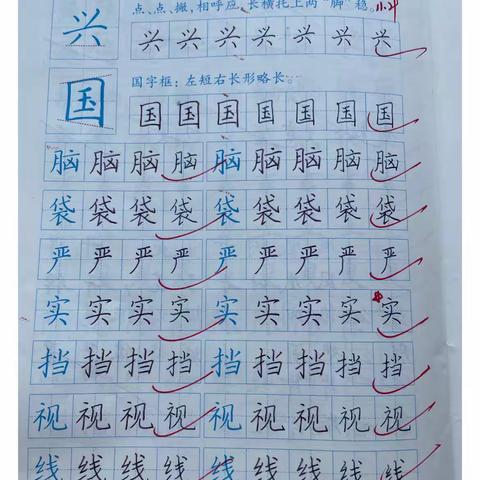 点、点、撇,相呼应,长横托上两“脚”稳。11.24
兴 兴 兴 兴 兴 兴 兴 兴
国字框:左短右长形略长。
国 国 国 国 国 国 国 国
脑 脑 脑 脑 脑 脑 脑 脑
袋 袋 袋 袋 袋 袋 袋 袋
严 严 严 严 严 严 严 严
实 实 实 实 实 实 实 实
挡 挡 挡 挡 挡 挡 挡 挡
视 视 视 视 视 视 视 视
线 线 线 线 线 线 线 线